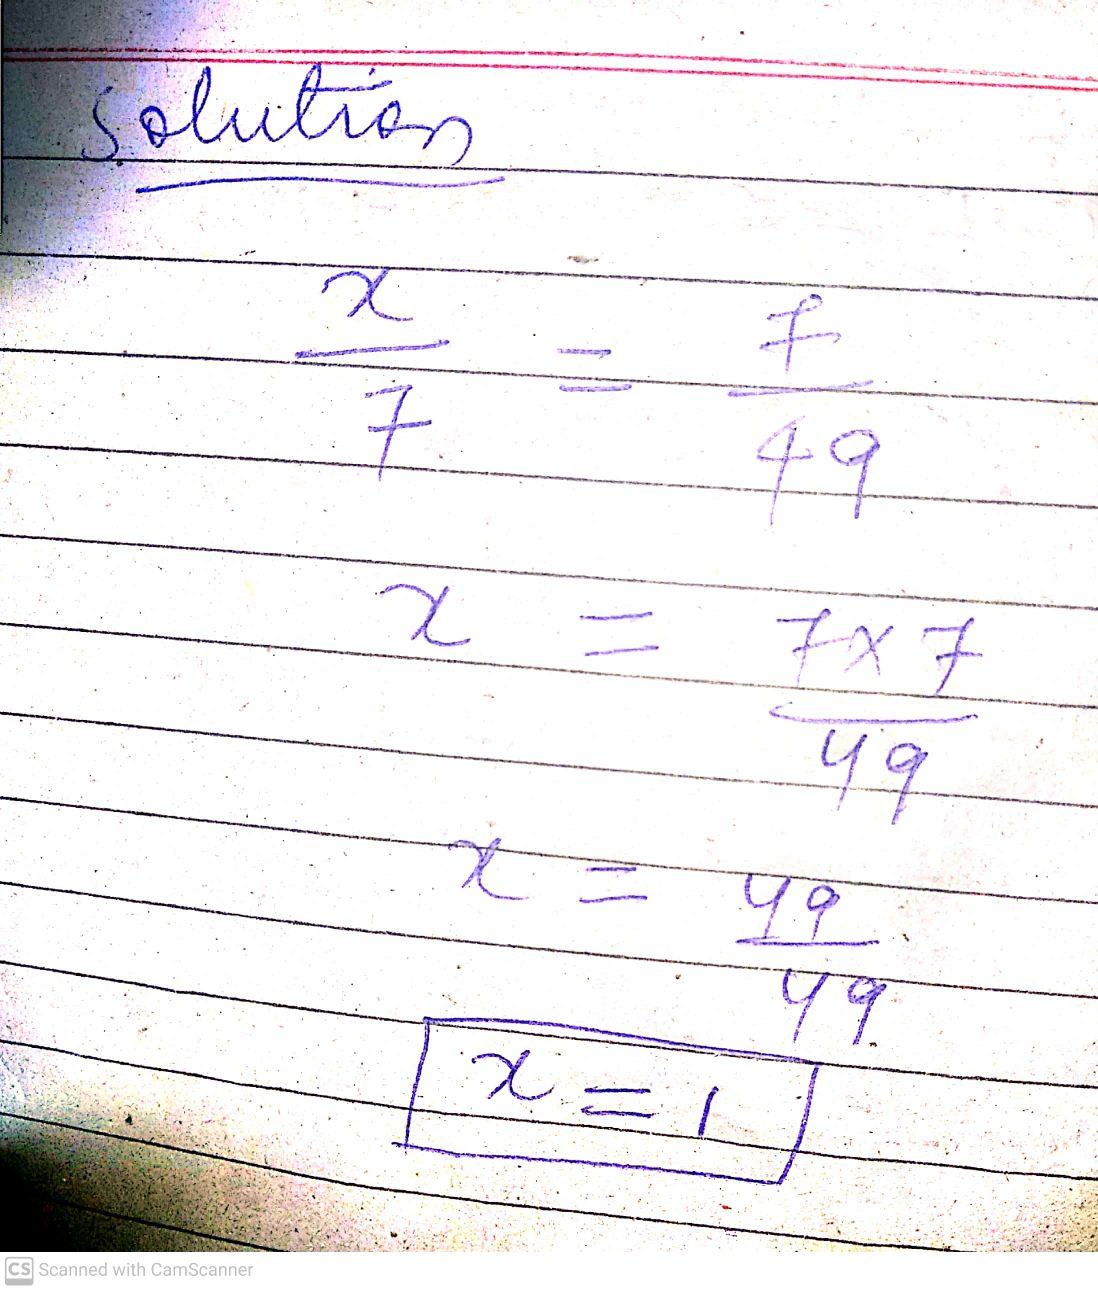 Solution
x/7 = 7/49
x = 7×7/49
x = 49/49
x = 1
CS Scanned with CamScanner